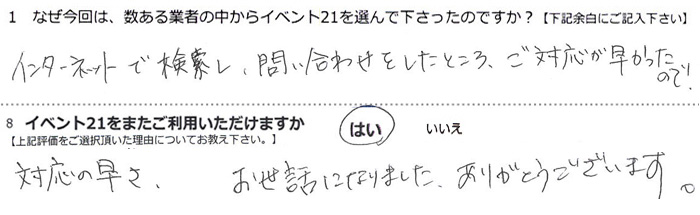 1 なぜ今回は、数ある業者の中からイベント21を選んで下さったのですか？【下記余白にご記入下さい】
インターネットで検索し、問い合わせをしたところ、ご対応が早かった
ので！
8 イベント21をまたご利用いただけますか はい いいえ
【上記評価をご選択頂いた理由についてお教え下さい。】
対応の早さ、 お世話になりました、ありがとうございます。